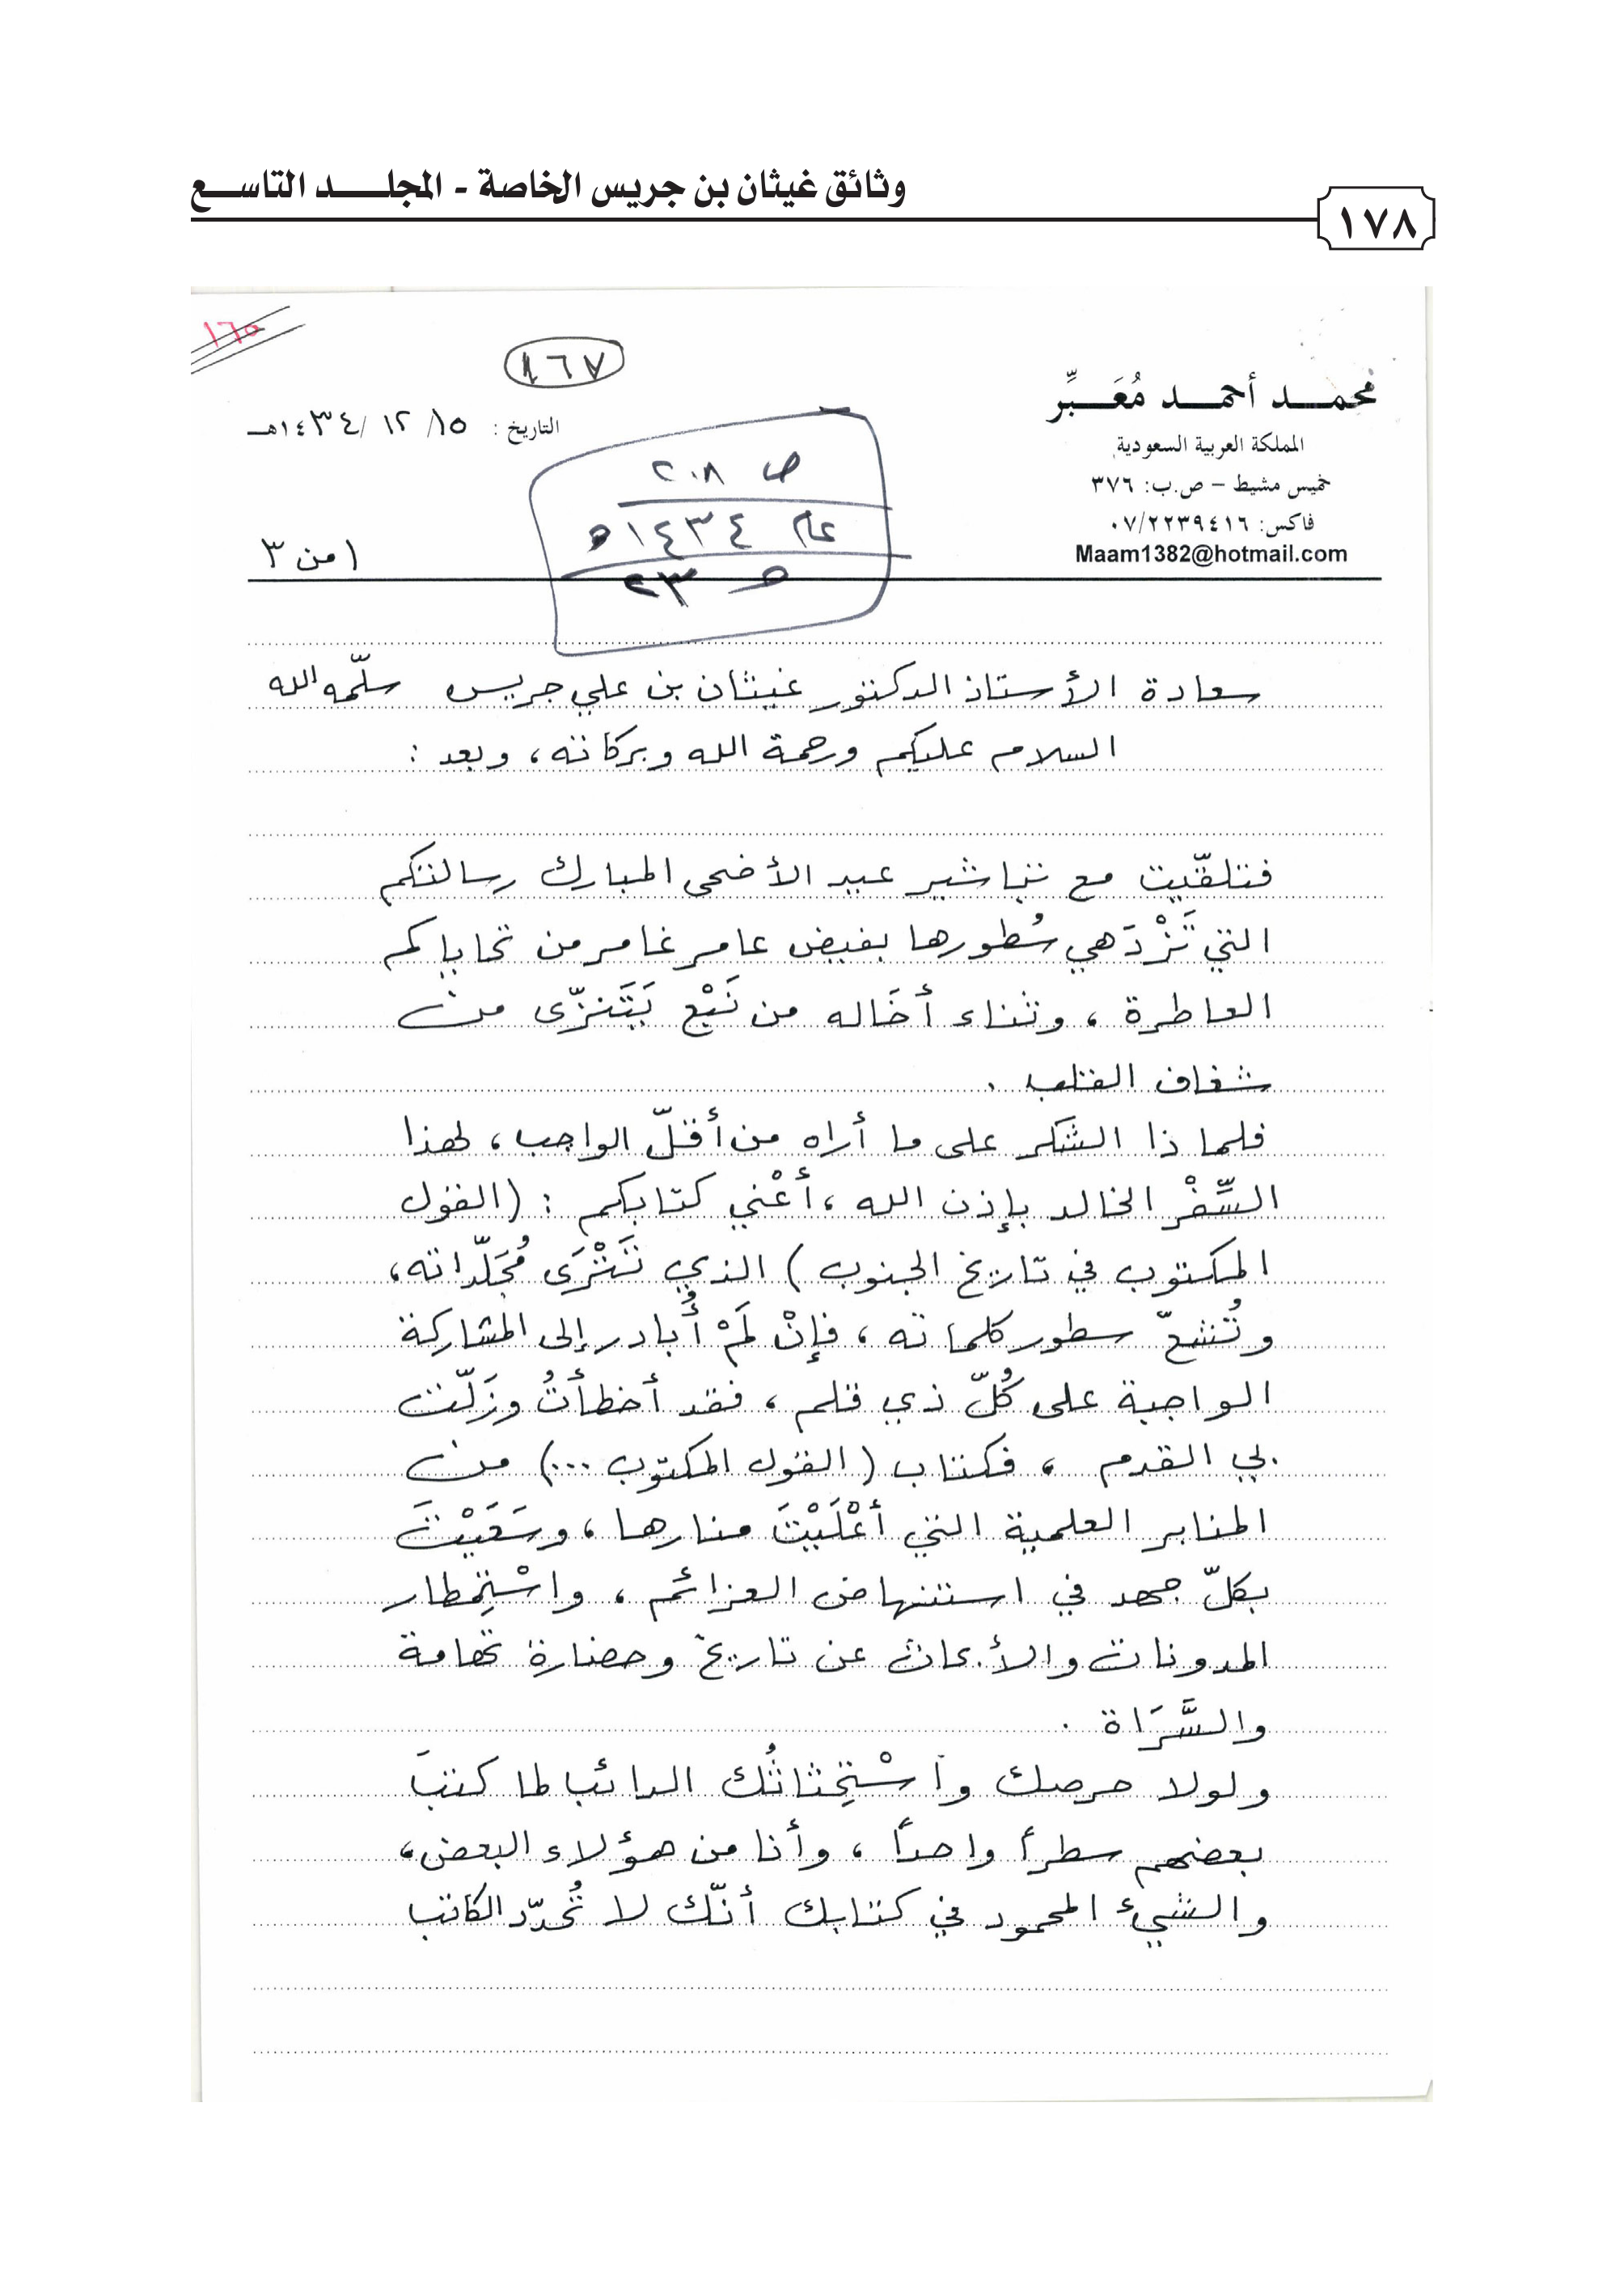 وثائق غيثان بن جريس الخاصة - المجلـــد التاســـع
١٧٨
١٦٥
١٦٧
محمـــد أحمـــد مُعَـــبِّر
المملكة العربية السعودية
خميس مشيط – ص.ب: ٣٧٦
فاكس: ٠٧/٢٢٣٩٤١٦
Maam1382@hotmail.com
التاريخ : ١٥/ ١٢ /١٤٣٤هـ
ص ٢٠٨
عام ١٤٣٤هـ
٢٣
١ من ٣
سعادة الأستاذ الدكتور غيثان بن علي جريس سلّمه الله
السلام عليكم ورحمة الله وبركاته، وبعد :
فتلقّيت مع تباشير عيد الأضحى المبارك رسالتكم
التي تَزْدَهي سُطورها بفيض عامر غامر من تحاياكم
العاطرة ، وثناء أخَاله من نَبْع يَتَنزّى من
شغاف القلب .
فلماذا الشكر على ما أراه من أقلّ الواجب، لهذا
السِّفْر الخالد بإذن الله ، أعْني كتابكم : (القول
المكتوب في تاريخ الجنوب) الذي تَتْرَى مُجَلّداته،
وتُشعّ سطور كلماته ، فإنْ لَمْ أُبادر إلى المشاركة
الواجبة على كُلّ ذي قلم ، فقد أخطأتُ وزَلّت
بي القدم ، فكتاب (القول المكتوب ...) من
المنابر العلمية التي أعْلَيْتَ منارها ، وسَعَيْتَ
بكلّ جهد في استنهاض العزائم ، واسْتِمطار
المدونات والأبحاث عن تاريخ وحضارة تهامة
والسَّرَاة .
ولولا حرصك واسْتِحْثاثُك الدائب لما كتبَ
بعضهم سطراً واحداً ، وأنا من هؤلاء البعض،
والشيء المحمود في كتابك أنّك لا تُحدّد الكاتب